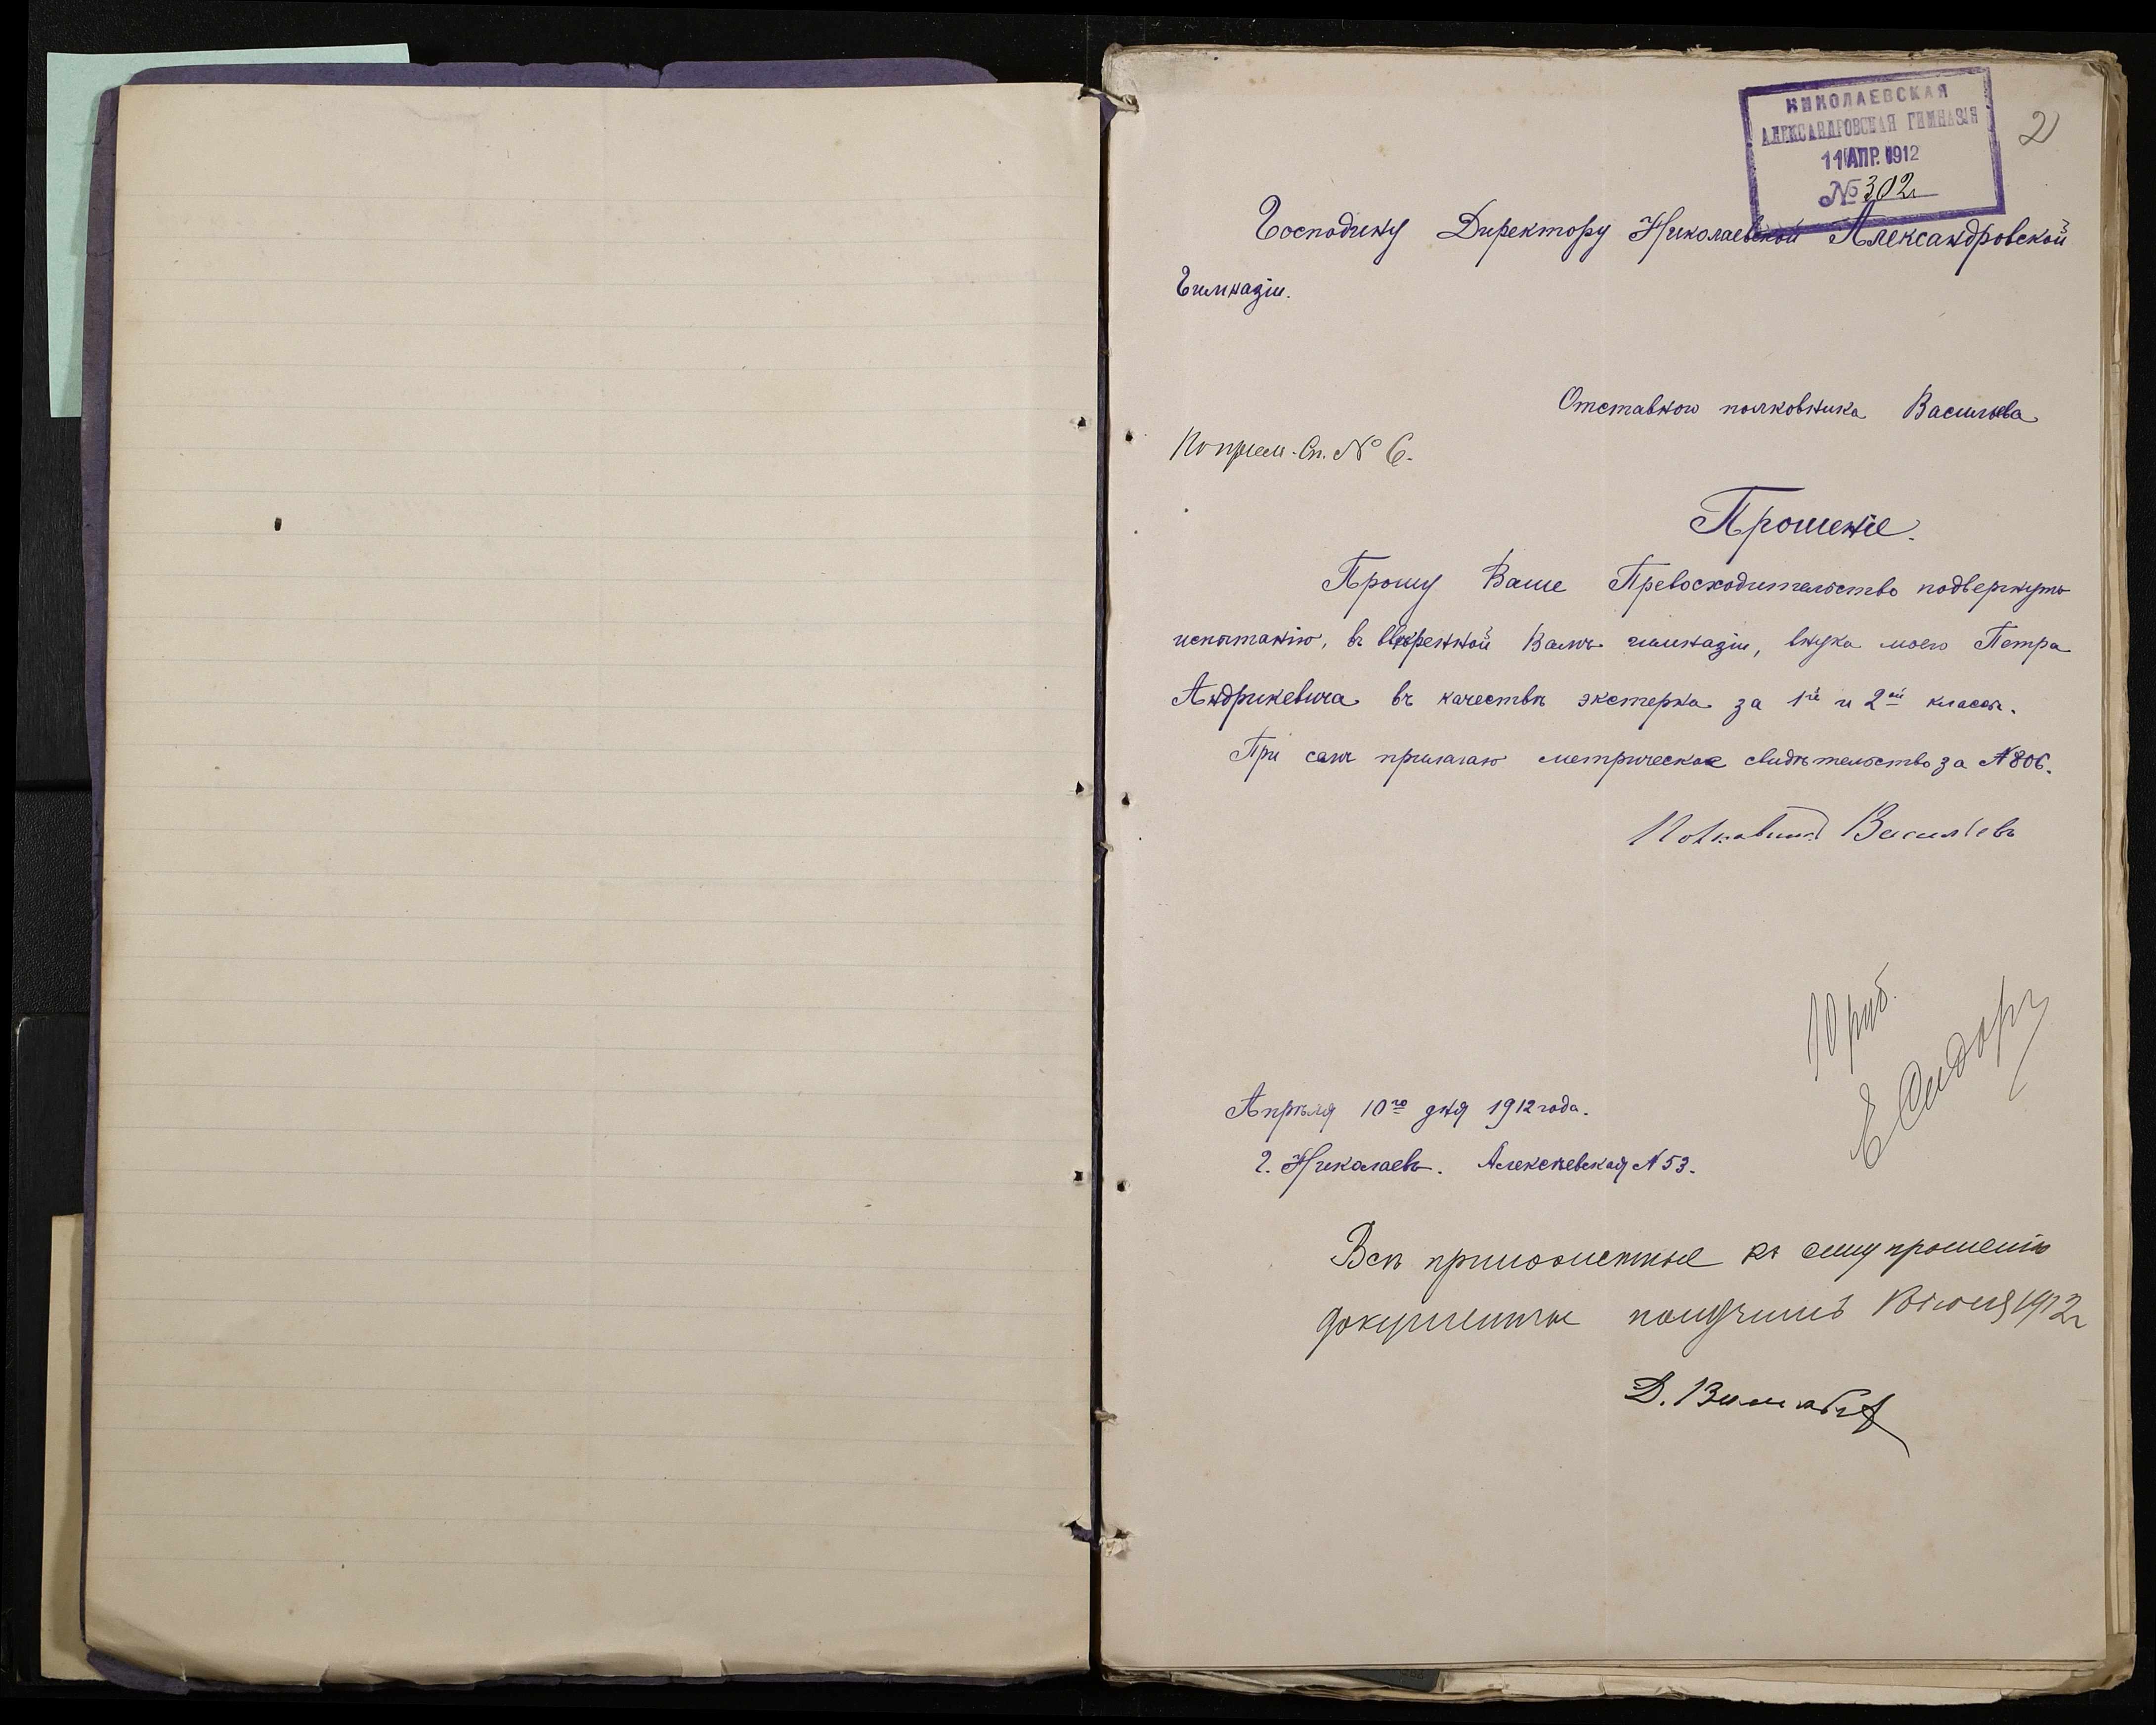 НИКОЛАЕВСКАЯ
АЛЕКСАНДРОВСКАЯ ГИМНАЗІЯ
11 АПР. 1912
№ 302
2
Господину Директору Николаевской Александровской
Гимназіи.
Отставного полковника Васильева
По прием. Сп. № 6.
Прошеніе.
Прошу Ваше Превосходительство подвергнуть
испытанію, въ ввѣренной Вамъ гимназіи, внука моего Петра
Андрикевича въ качествѣ экстерна за 1й и 2ой классъ.
При семъ прилагаю метрическое свидѣтельство за № 806.
Полковникъ Васильевъ
10 руб.
Апрѣля 10го дня 1912 года.
г. Николаевъ. Алексѣевская № 53.
Всѣ приложенные къ сему прошенію
документы получилъ іюня 1912 г
Д.